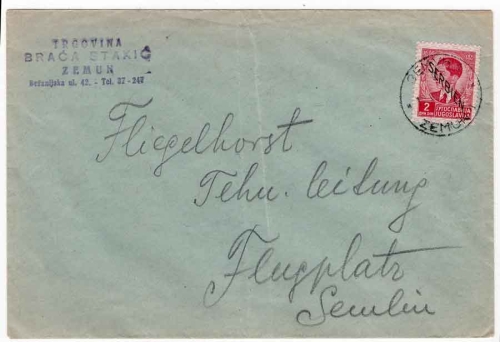 TRGOVINA
BRAĆA STAKIĆ
ZEMUN
Bežanijska ul. 42. - Tel. 37-247
SERBIEN
2
JUGOSLAVIJA
ZEMUN
Fliegelhorst
Tehn. leitung
Flugplatz
Semlin